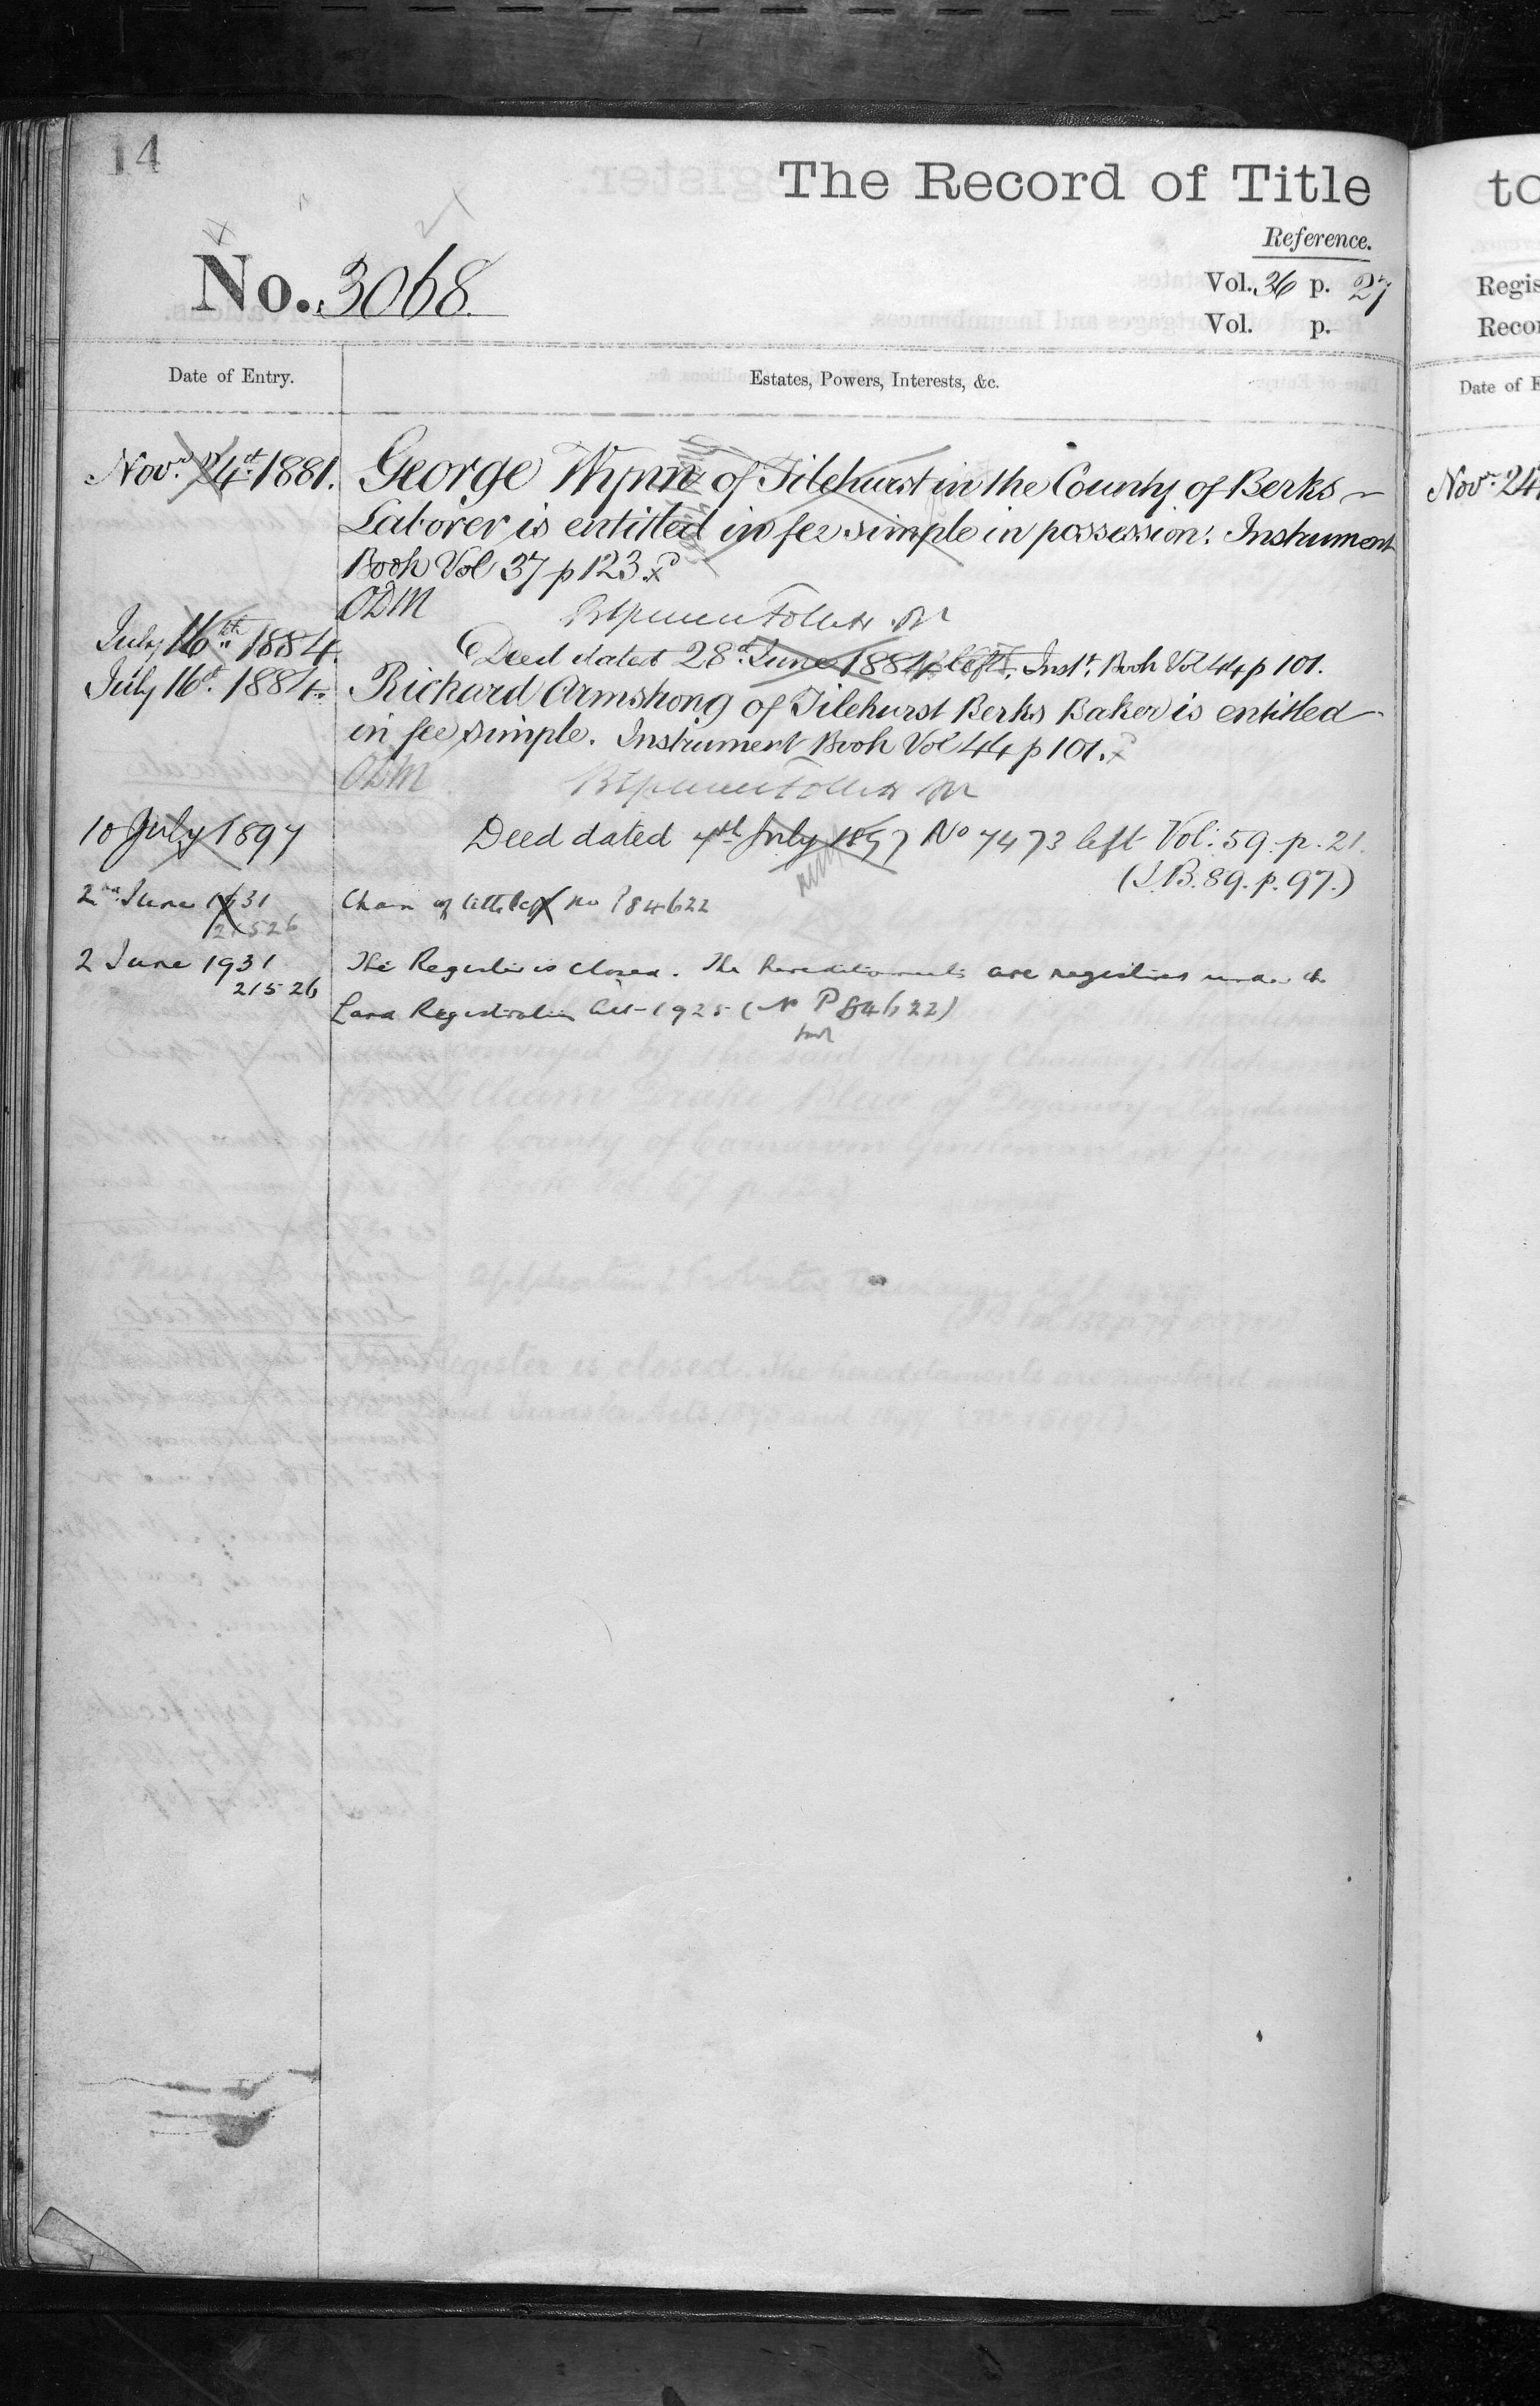 14
The Record of Title
Reference.
No. 3068.
Vol. 36 p. 27
Vol. p.
Date of Entry.
Estates, Powers, Interests, &c.
Novr. 24th 1881.
George Wynn of Tilehurst in the County of Berks
Laborer is entitled in fee simple in possession. Instrument
Book Vol 37 p 123.
ODM
July 16th 1884.
Deed dated 28th June 1884 left. Inst. Book Vol 44 p 101.
July 16th 1884.
Richard Armstrong of Tilehurst Berks Baker is entitled
in fee simple. Instrument Book Vol 44 p 101.
ODM
10 July 1897
Deed dated 7th July 1897 No 7473 left Vol: 59. p. 21.
(I.B. 89. p. 97.)
2nd June 1931
21526
of title No P84622
2 June 1931
21526
The Register is closed. The hereditaments are registered under the
Land Registration Act 1925 (No P84622)
to
Regis
Recor
Date of E
Novr. 24